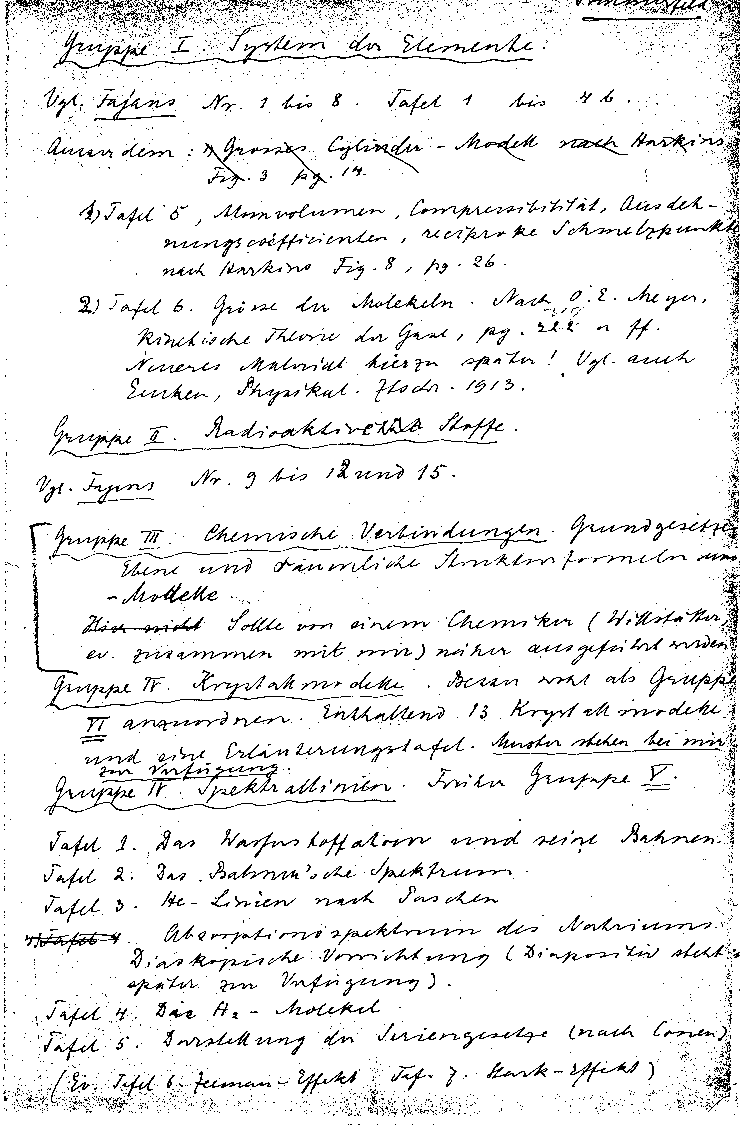 Sommerfeld
Gruppe I. System der Elemente.
Vgl. Fajans Nr. 1 bis 8. Tafel 1 bis 4b.
Ausserdem: 1) Grosses Cylinder-Modell nach Harkins
Fig. 3 pg. 14.
1) Tafel 5, Atomvolumen, Compressibilität, Ausdeh-
nungscoëfficienten, reciproke Schmelzpunkte
nach Harkins Fig. 8, pg. 26.
2) Tafel 6. Grösse der Molekeln. Nach O. E. Meyer,
Kinetische Theorie der Gase, pg. u ff.
Neueres Material hierzu später! Vgl. auch
Eucken, Physikal. Ztschr. 1913.
Gruppe II. Radioaktive Stoffe.
Vgl. Fajans Nr. 9 bis 12 und 15.
Gruppe III. Chemische Verbindungen. Grundgesetze
Ebene und räumliche Strukturformeln und
-Modelle.
Hier nicht Sollte von einem Chemiker (Willstätter,
ev. zusammen mit mir) näher ausgeführt werden
Gruppe IV. Krystallmodelle. Besser wohl als Gruppe
VI anzuordnen. Enthaltend 13 Krystallmodelle
und eine Erläuterungstafel. Muster stehen bei mir
zur Verfügung.
Gruppe IV. Spektrallinien. Früher Gruppe V.
Tafel 1. Das Wasserstoffatom und seine Bahnen.
Tafel 2. Das Balmer'sche Spektrum.
Tafel 3. He-Linien nach Paschen
4) Tafel 4 Absorptionsspektrum des Natriums.
Diaskopische Vorrichtung (Diapositiv steht
später zur Verfügung).
Tafel 4. Die H₂-Molekel
Tafel 5. Darstellung der Seriengesetze (nach )
(Ev. Tafel 6 Zeeman-Effekt Taf. 7. Stark-Effekt)